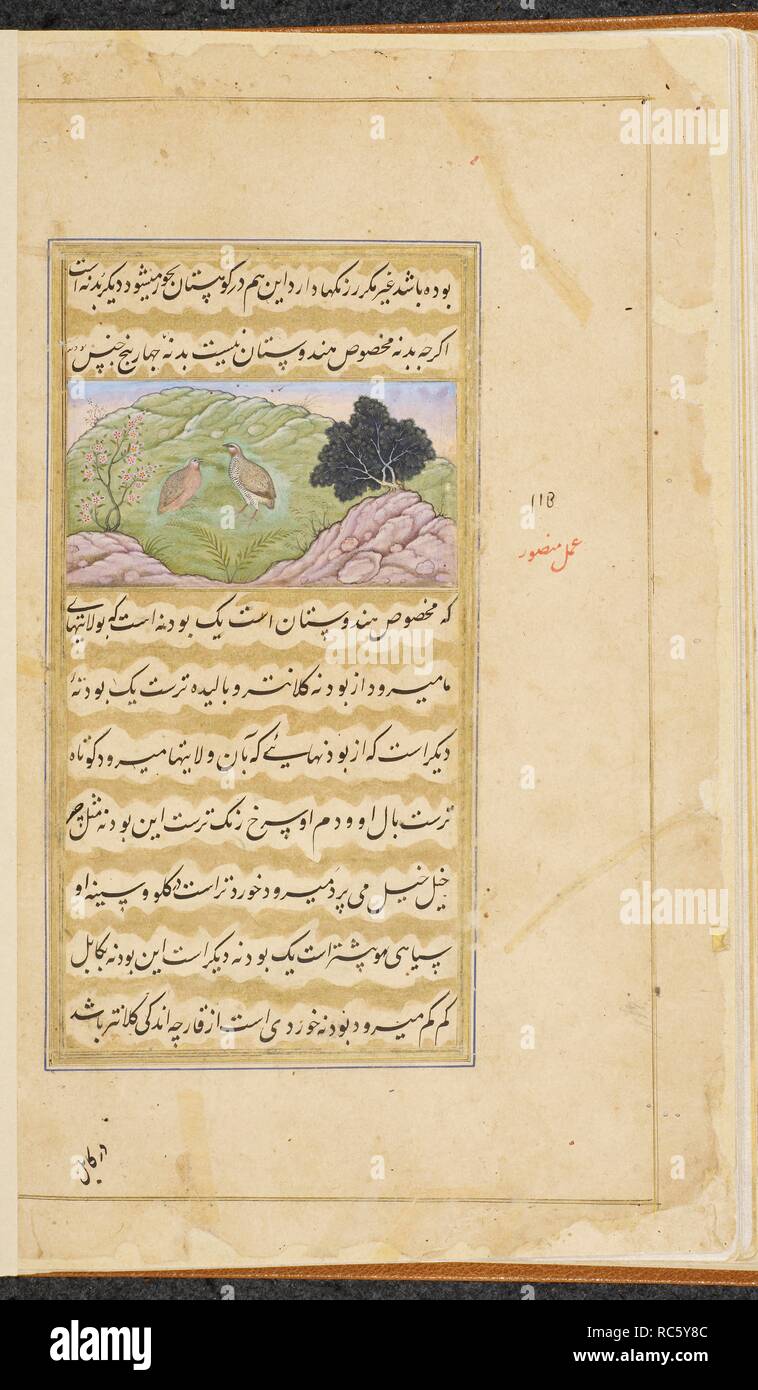 بوده باشد غیر مکرر رنکها دارد این هم در کوهستان بجور میشود دیکر بدنه است
اکرچه بدنه مخصوص هندوستان نیست بدنه چهار پنج جنس
118
عمل منصور
که مخصوص هندوستان است یک بودنه است که بولایتهای
ما میرود از بودنه کلانتر و بالیده ترست یک بودنه
دیکر است که از بودنهائے که بآن ولایتها میرود کوتاه
ترست بال او و دم او سرخ رنک ترست این بودنه مثل
خیل خیل می پرد میرود خورد تراست در کلو و سینه او
سیاهی موبیشتر است یک بودنه دیکر است این بودنه بکابل
کم کم میرود بودنه خوردی است از قارچه اندکی کلانتر باشد
در کابل
alamy
Image ID: RC5Y8C
www.alamy.com